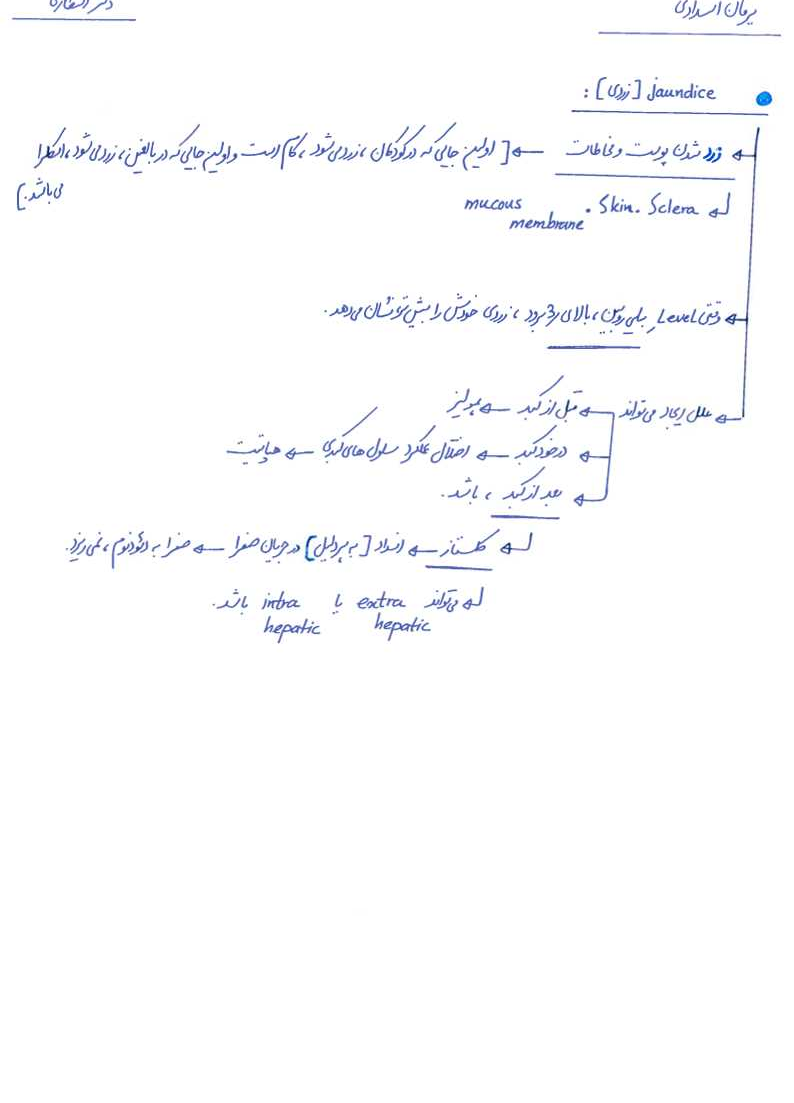 یرقان انسدادی
دکتر
jaundice [زردی] :
زرد شدن پوست و مخاطات ← [اولین جایی که در کودکان، زرد می‌شود، کام است و اولین جایی که در بالغین، زرد می‌شود، اسکلرا
می‌باشد.]
Sclera . Skin . mucous membrane
وقتی Level بیلی روبین، بالای 3 برود، زردی خودش را بیش‌تر نشان می‌دهد.
علل ایجاد می‌تواند ← قبل از کبد ← همولیز
در خود کبد ← اختلال عملکرد سلول های کبدی ← هپاتیت
بعد از کبد، باشد.
کلستاز ← انسداد [به هر دلیل] در جریان صفرا ← صفرا به دئودنوم، نمی‌ریزد.
می‌تواند extra hepatic یا intra hepatic باشد.